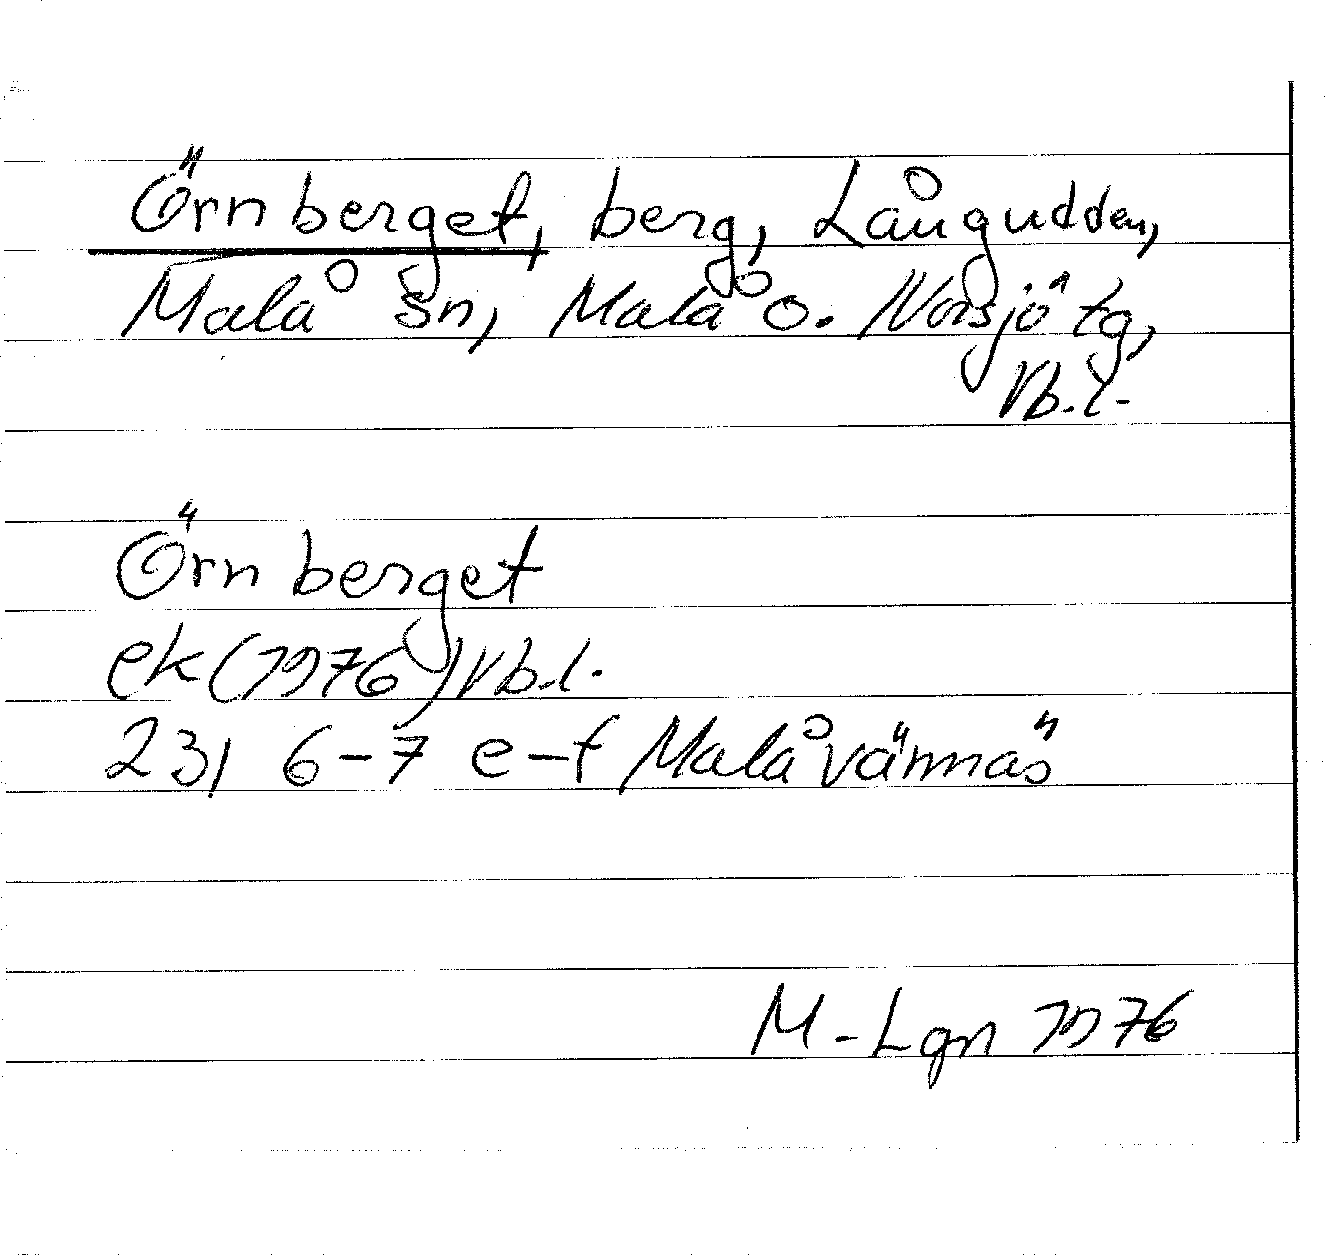 Örnberget, berg, Långudden,
Malå sn, Malå o. Norsjö tg,
Vb.l.
Örnberget
ek (1976) Vb.l.
23I 6-7 e-f Malåvännäs
M-Lgn 1976